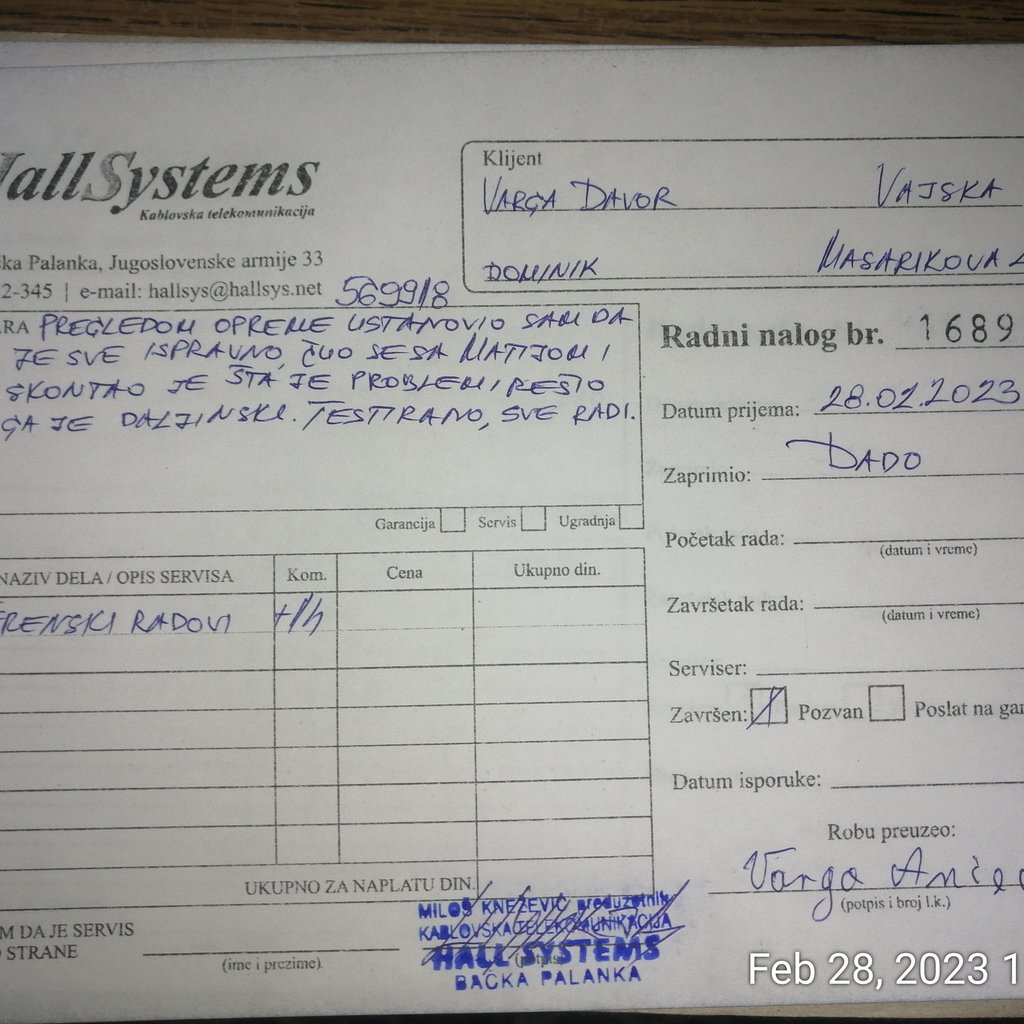 HallSystems
Kablovska telekomunikacija
ka Palanka, Jugoslovenske armije 33
2-345 | e-mail: hallsys@hallsys.net
569918
Klijent
VARGA DAVOR VAJSKA
DOMINIK MASARIKOVA
ARA PREGLEDOM OPREME USTANOVIO SAM DA
JE SVE ISPRAVNO, ČUO SE SA MATIJOM I
SKONTAO JE ŠTA JE PROBLEM, REŠIO
GA JE DALJINSKI. TESTIRANO, SVE RADI.
Garancija Servis Ugradnja
Radni nalog br. 1689
Datum prijema: 28.02.2023
Zaprimio: DADO
Početak rada:
(datum i vreme)
Završetak rada:
(datum i vreme)
Serviser:
Završen: Pozvan Poslat na gar
Datum isporuke:
Robu preuzeo:
Varga
(potpis i broj l.k.)
NAZIV DELA / OPIS SERVISA Kom. Cena Ukupno din.
ERENSKI RADOVI
UKUPNO ZA NAPLATU DIN.
M DA JE SERVIS
O STRANE
(ime i prezime)
(potpis)
MILOŠ KNEŽEVIĆ preduzetnik
KABLOVSKA TELEKOMUNIKACIJA
HALL SYSTEMS
BAČKA PALANKA
Feb 28, 2023 1